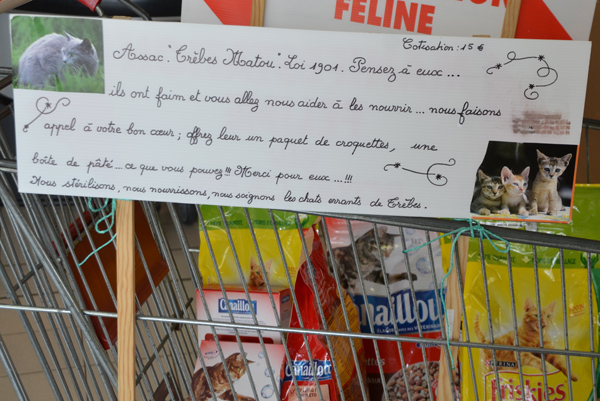 FÉLINE
Cotisation : 15 €
Assac. "Trèbes Matou". Loi 1901. Pensez à eux ...
ils ont faim et vous allez nous aider à les nourrir ... nous faisons
appel à votre bon cœur ; offrez leur un paquet de croquettes, une
boîte de pâté ... ce que vous pouvez !!! Merci pour eux ... !!!
Nous stérilisons, nous nourrissons, nous soignons les chats errants de Trèbes.
CANAILLOU
CANAILLOU
CANAILLOU
PURINA
Friskies